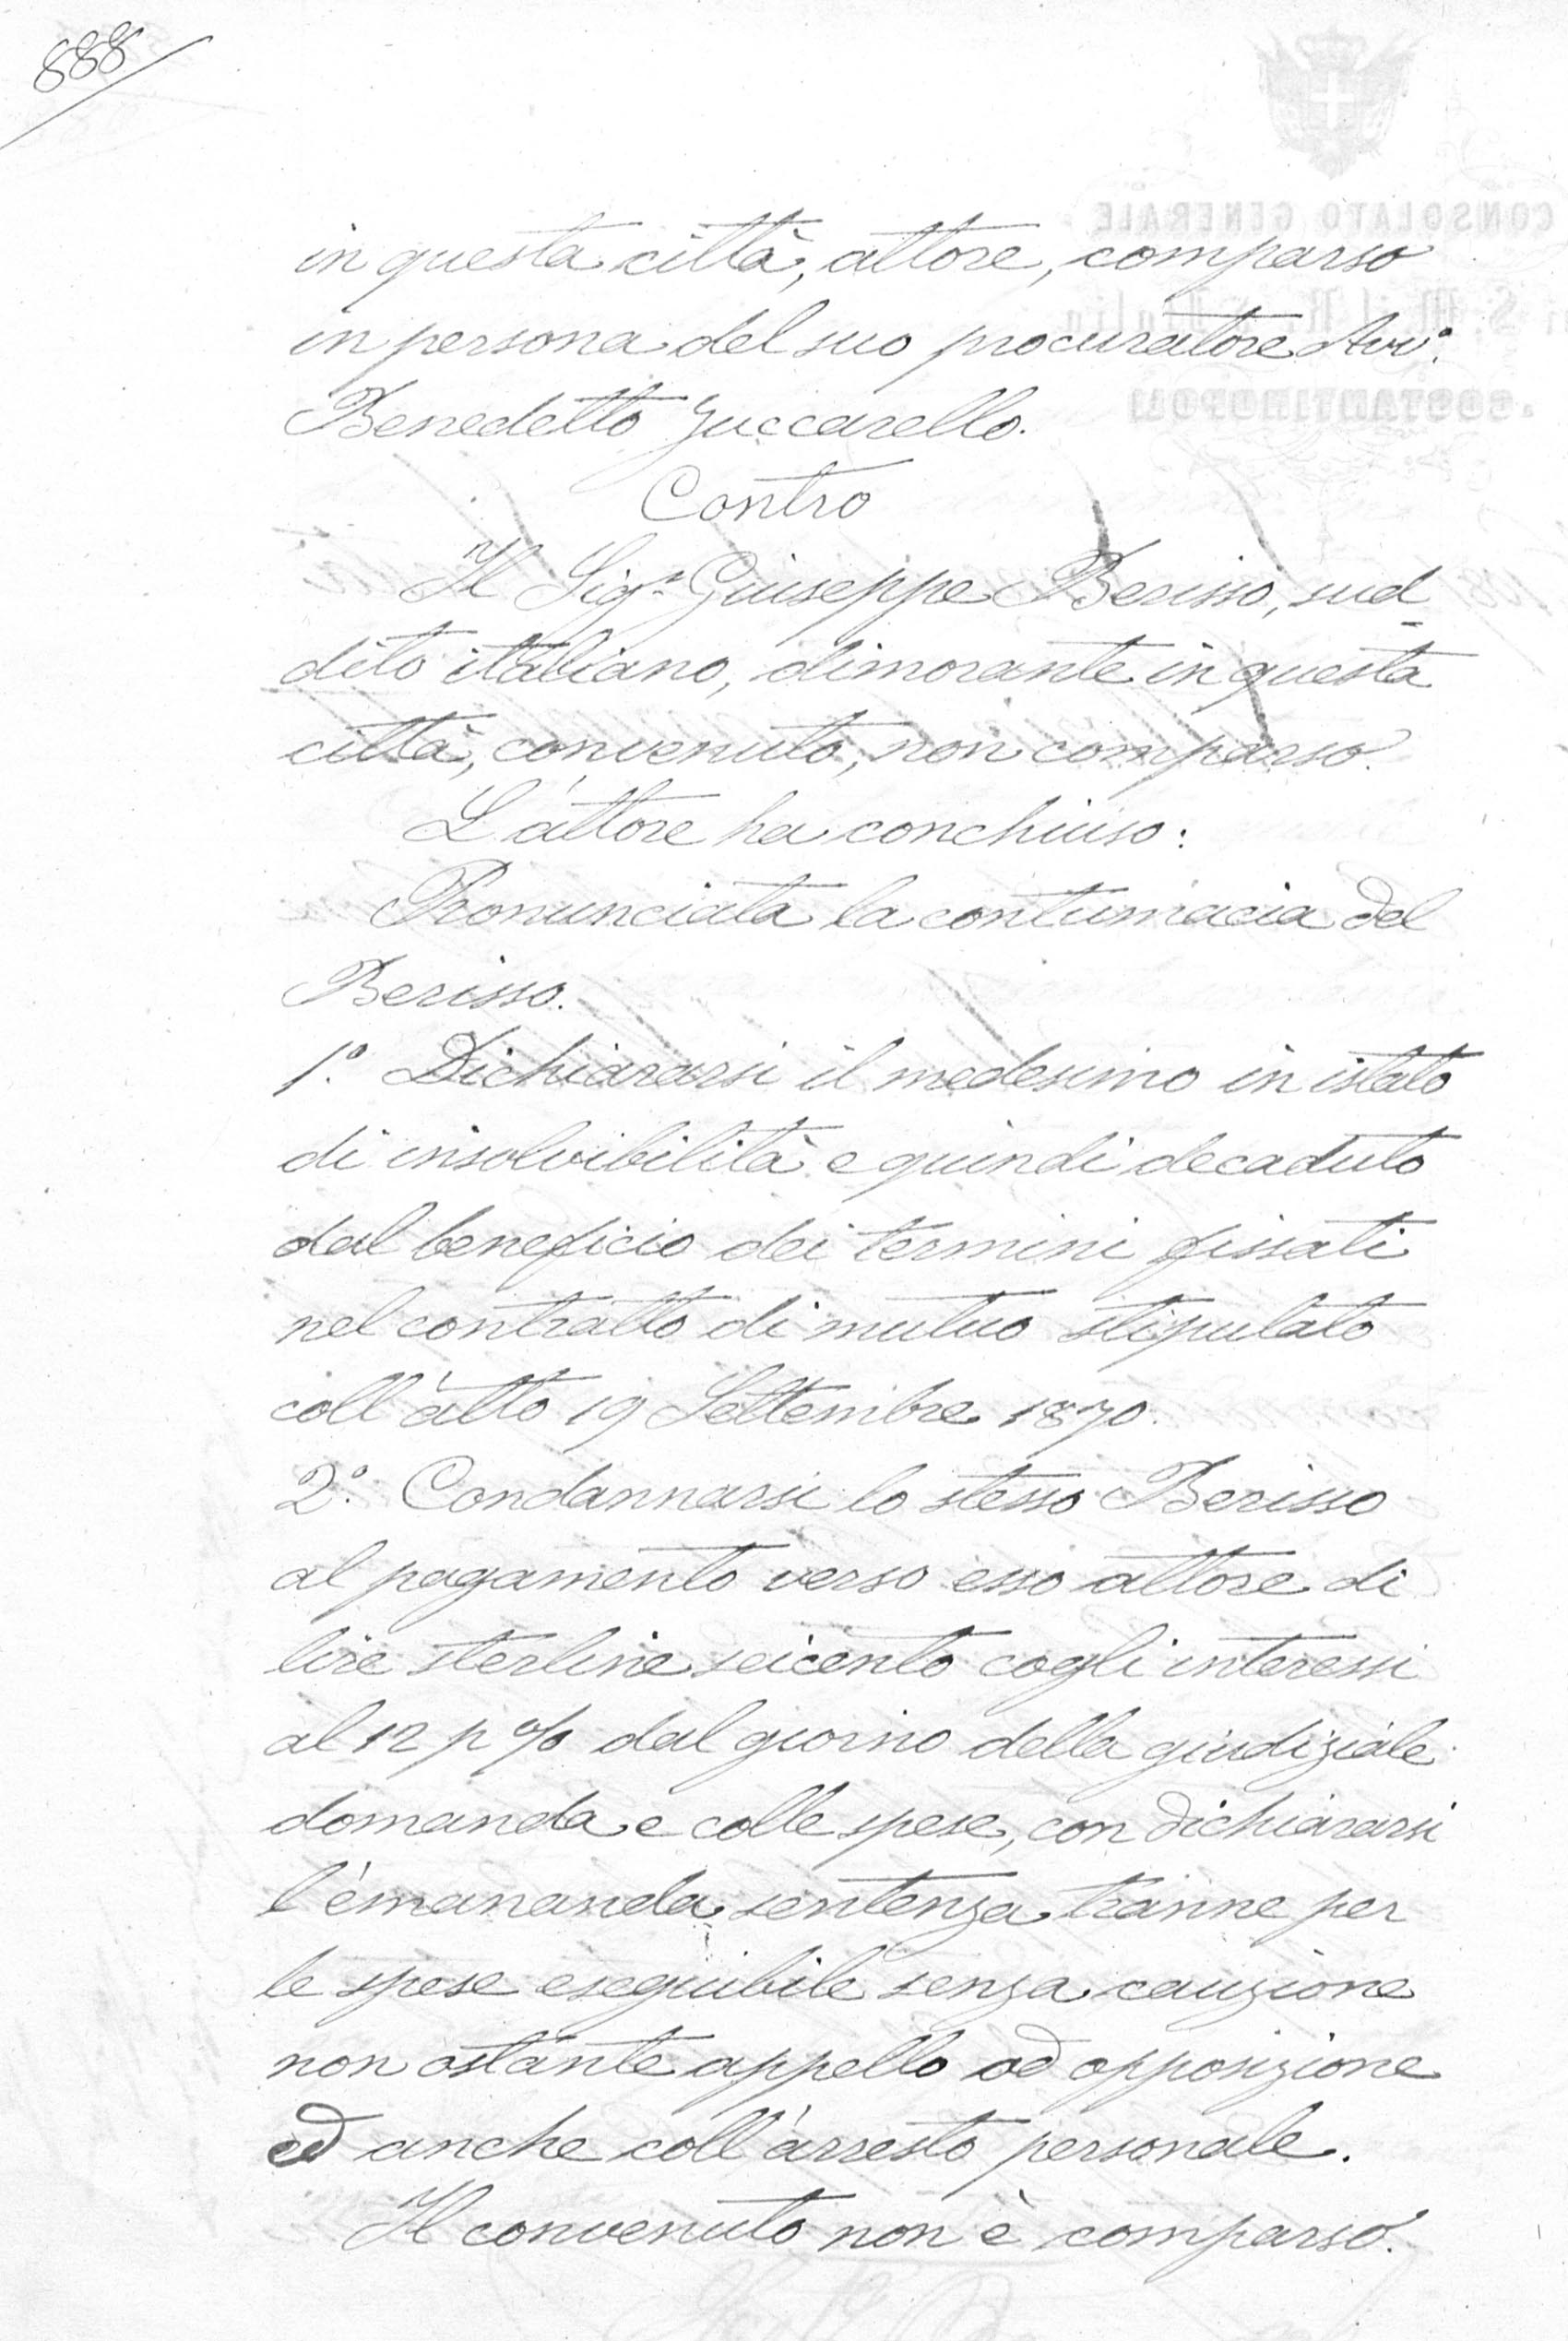 888
in questa città, attore, comparso
in persona del suo procuratore Avv.º
Benedetto Zuccarello.
Contro
Il Sig.r Giuseppe Berisso, sud
dito italiano, dimorante in questa
città, convenuto, non comparso.
L'attore ha conchiuso:
Pronunciata la contumacia del
Berisso.
1.º Dichiararsi il medesimo in istato
di insolvibilità e quindi decaduto
dal beneficio dei termini fissati
nel contratto di mutuo stipulato
coll'atto 19 Settembre 1870.
2.º Condannarsi lo stesso Berisso
al pagamento verso esso attore di
lire sterline seicento cogli interessi
al 12 p % dal giorno della giudiziale
domanda e colle spese, con dichiararsi
l'emananda sentenza tranne per
le spese eseguibile senza cauzione
non ostante appello od opposizione
ed anche coll'arresto personale.
Il convenuto non è comparso.